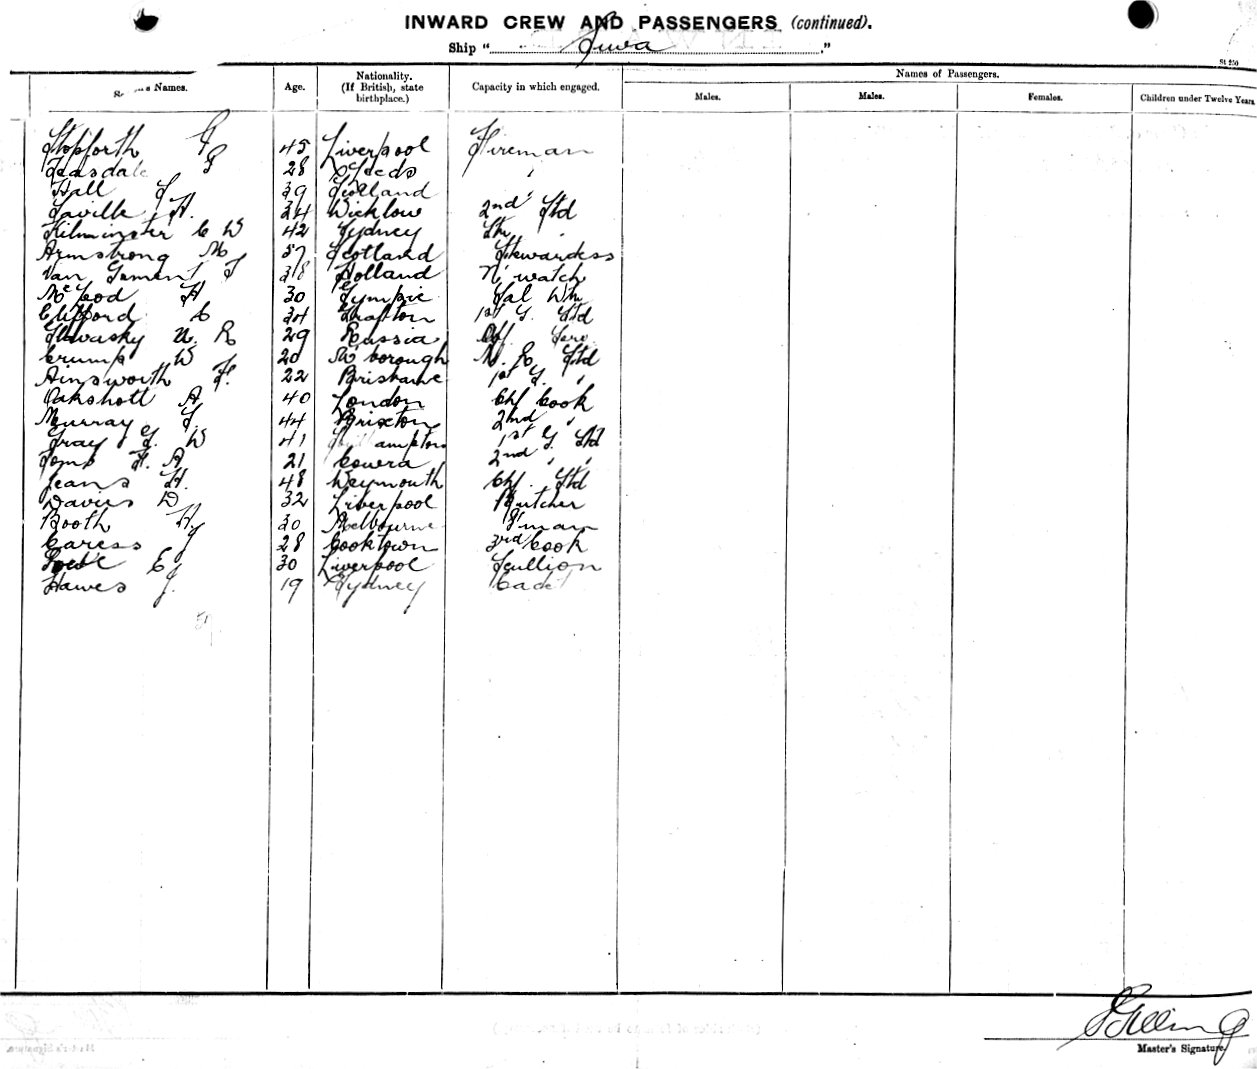 INWARD CREW AND PASSENGERS (continued).
Ship " Suva ."
St 250
Names. Age. Nationality. (If British, state birthplace.) Capacity in which engaged. Names of Passengers.
Males. Males. Females. Children under Twelve Years
Stopforth G 45 Liverpool Fireman
Teasdale G 28 Leeds "
Hall 39 Scotland "
Saville H. 34 Wicklow 2nd Std
Kilminster C W 42 Sydney Sm "
Armstrong M 57 Scotland Stewardess
Van 38 Holland N' watch
McLeod H 30 Gympie Sal Wtr
Clifford C 34 Grafton 1st G. Std
R 29 Russia Off. Serv.
Crump W 20 M'borough Std
Ainsworth F. 22 Brisbane 1st G. "
Oakshott A 40 London Chf Cook
Murray 44 Brixton 2nd "
Gray G. W 41 1st G. Std
F. A 21 Cowra 2nd " "
Jeans H. 48 Weymouth Chf. Std
Davies D 32 Liverpool Butcher
Booth H. 30 Melbourne F'man
Caress J 28 Cooktown 3rd Cook
E 30 Liverpool Scullion
Hawes J. 19 Sydney Cadet
Master's Signature.